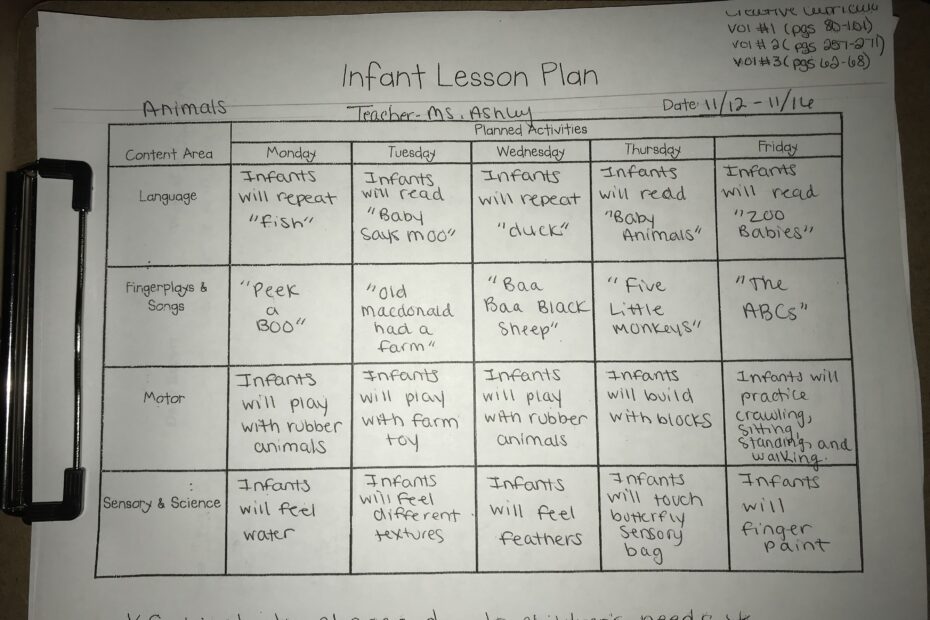 Creative Curricula
Vol #1 (pgs 80-101)
Vol #2 (pgs 257-271)
Vol #3 (pgs 62-68)
Infant Lesson Plan
Animals
Teacher- Ms. Ashley
Date: 11/12 - 11/16
Planned Activities
Content Area
Monday
Tuesday
Wednesday
Thursday
Friday
Language
Infants
will repeat
"fish"
Infants
will read
"Baby
Says Moo"
Infants
will repeat
"duck"
Infants
will read
"Baby
Animals"
Infants
will read
"Zoo
Babies"
Fingerplays &
Songs
"Peek
a
Boo"
"Old
macdonald
had a
farm"
"Baa
Baa Black
Sheep"
"Five
Little
Monkeys"
"The
ABCs"
Motor
Infants
will play
with rubber
animals
Infants
will play
with farm
toy
Infants
will play
with rubber
animals
Infants
will build
with blocks
Infants will
practice
crawling,
sitting,
standing, and
walking.
Sensory & Science
Infants
will feel
water
Infants
will feel
different
textures
Infants
will feel
feathers
Infants
will touch
butterfly
sensory
bag
Infants
will
finger
paint
to change due to children's needs